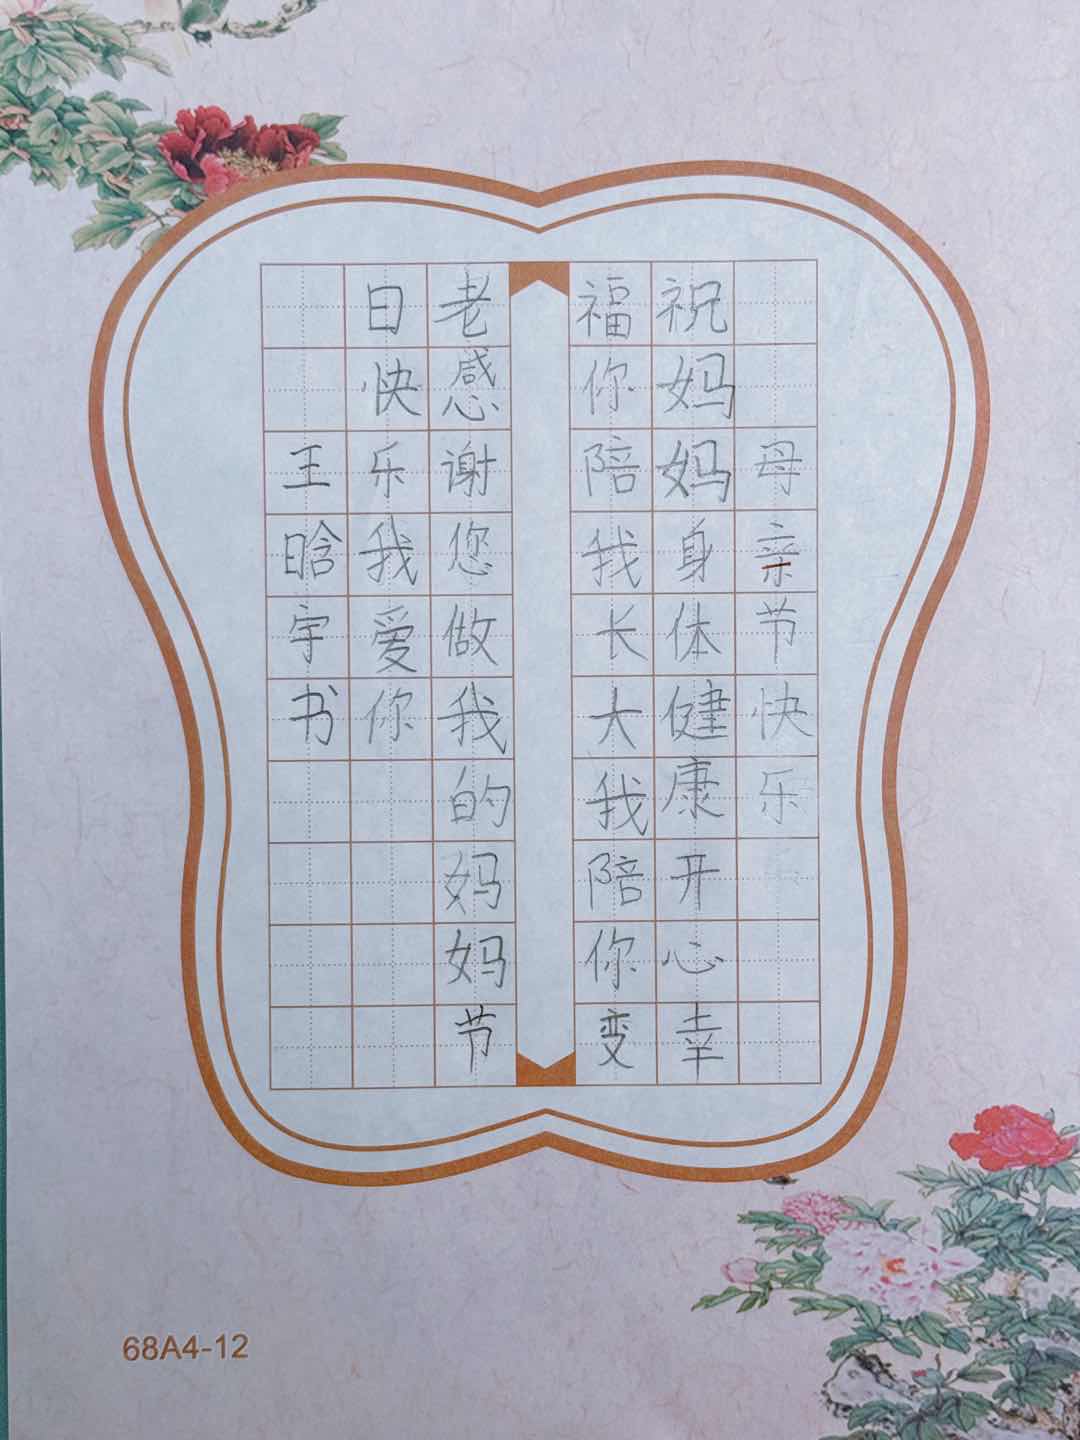 母亲节快乐
祝妈妈身体健康开心幸
福你陪我长大我陪你变
老感谢您做我的妈妈节
日快乐我爱你
王晗宇书
68A4-12